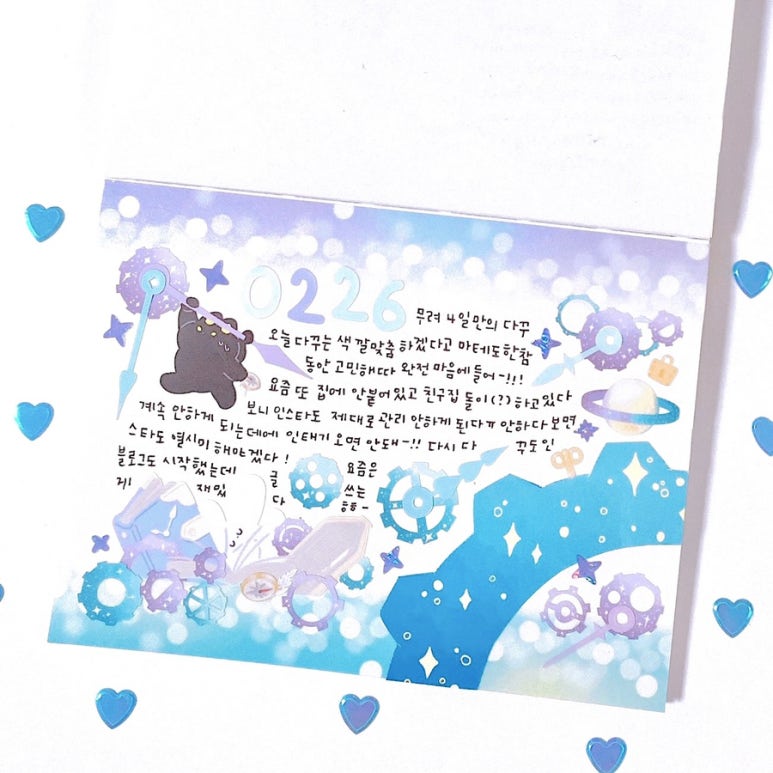 0226
무려 4일만의 다꾸
오늘 다꾸는 색깔맞춤 하겠다고 마테도한참
동안 고민해따 완전 마음에들어-!!!
요즘 또 집에 안붙어있고 친구집 돌이(?)하고있다
보니 인스타도 제대로관리 안하게 된다ㅠ 안하다보면
계속 안하게 되는데에 인태기 오면 안돼-!! 다시 다꾸도 인
스타도 열시미 해야겠다!
블로그도 시작했는데 글 요즘은
게 재밌 다 쓰는
ㅎㅎ-